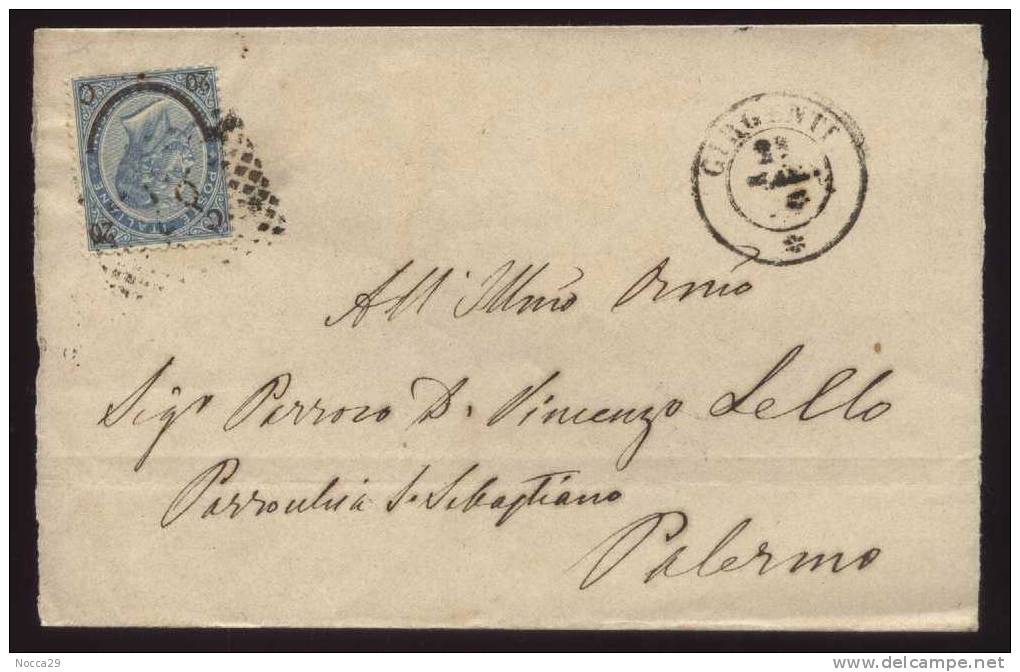 C 20
POSTE ITALIANE
20 C
GIRGENTI
All' Illmo Ormo
Sigr Parroco D. Vincenzo Lello
Parrochia S. Sebastiano
Palermo
Nocca29
www.delcampe.net